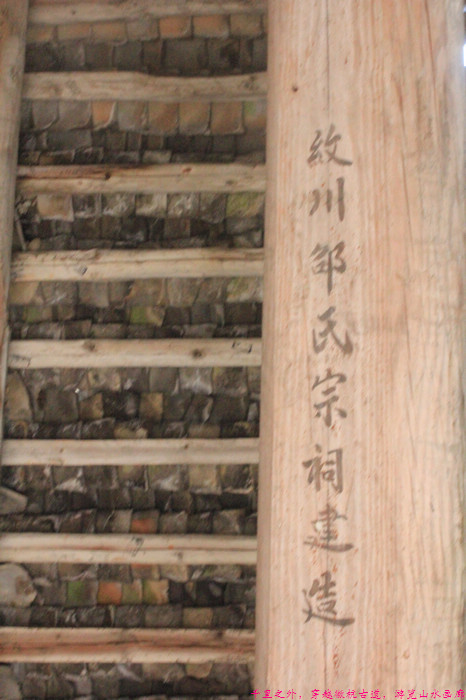 纹川邹氏宗祠建造
千里之外，穿越徽杭古道，游览山水画廊